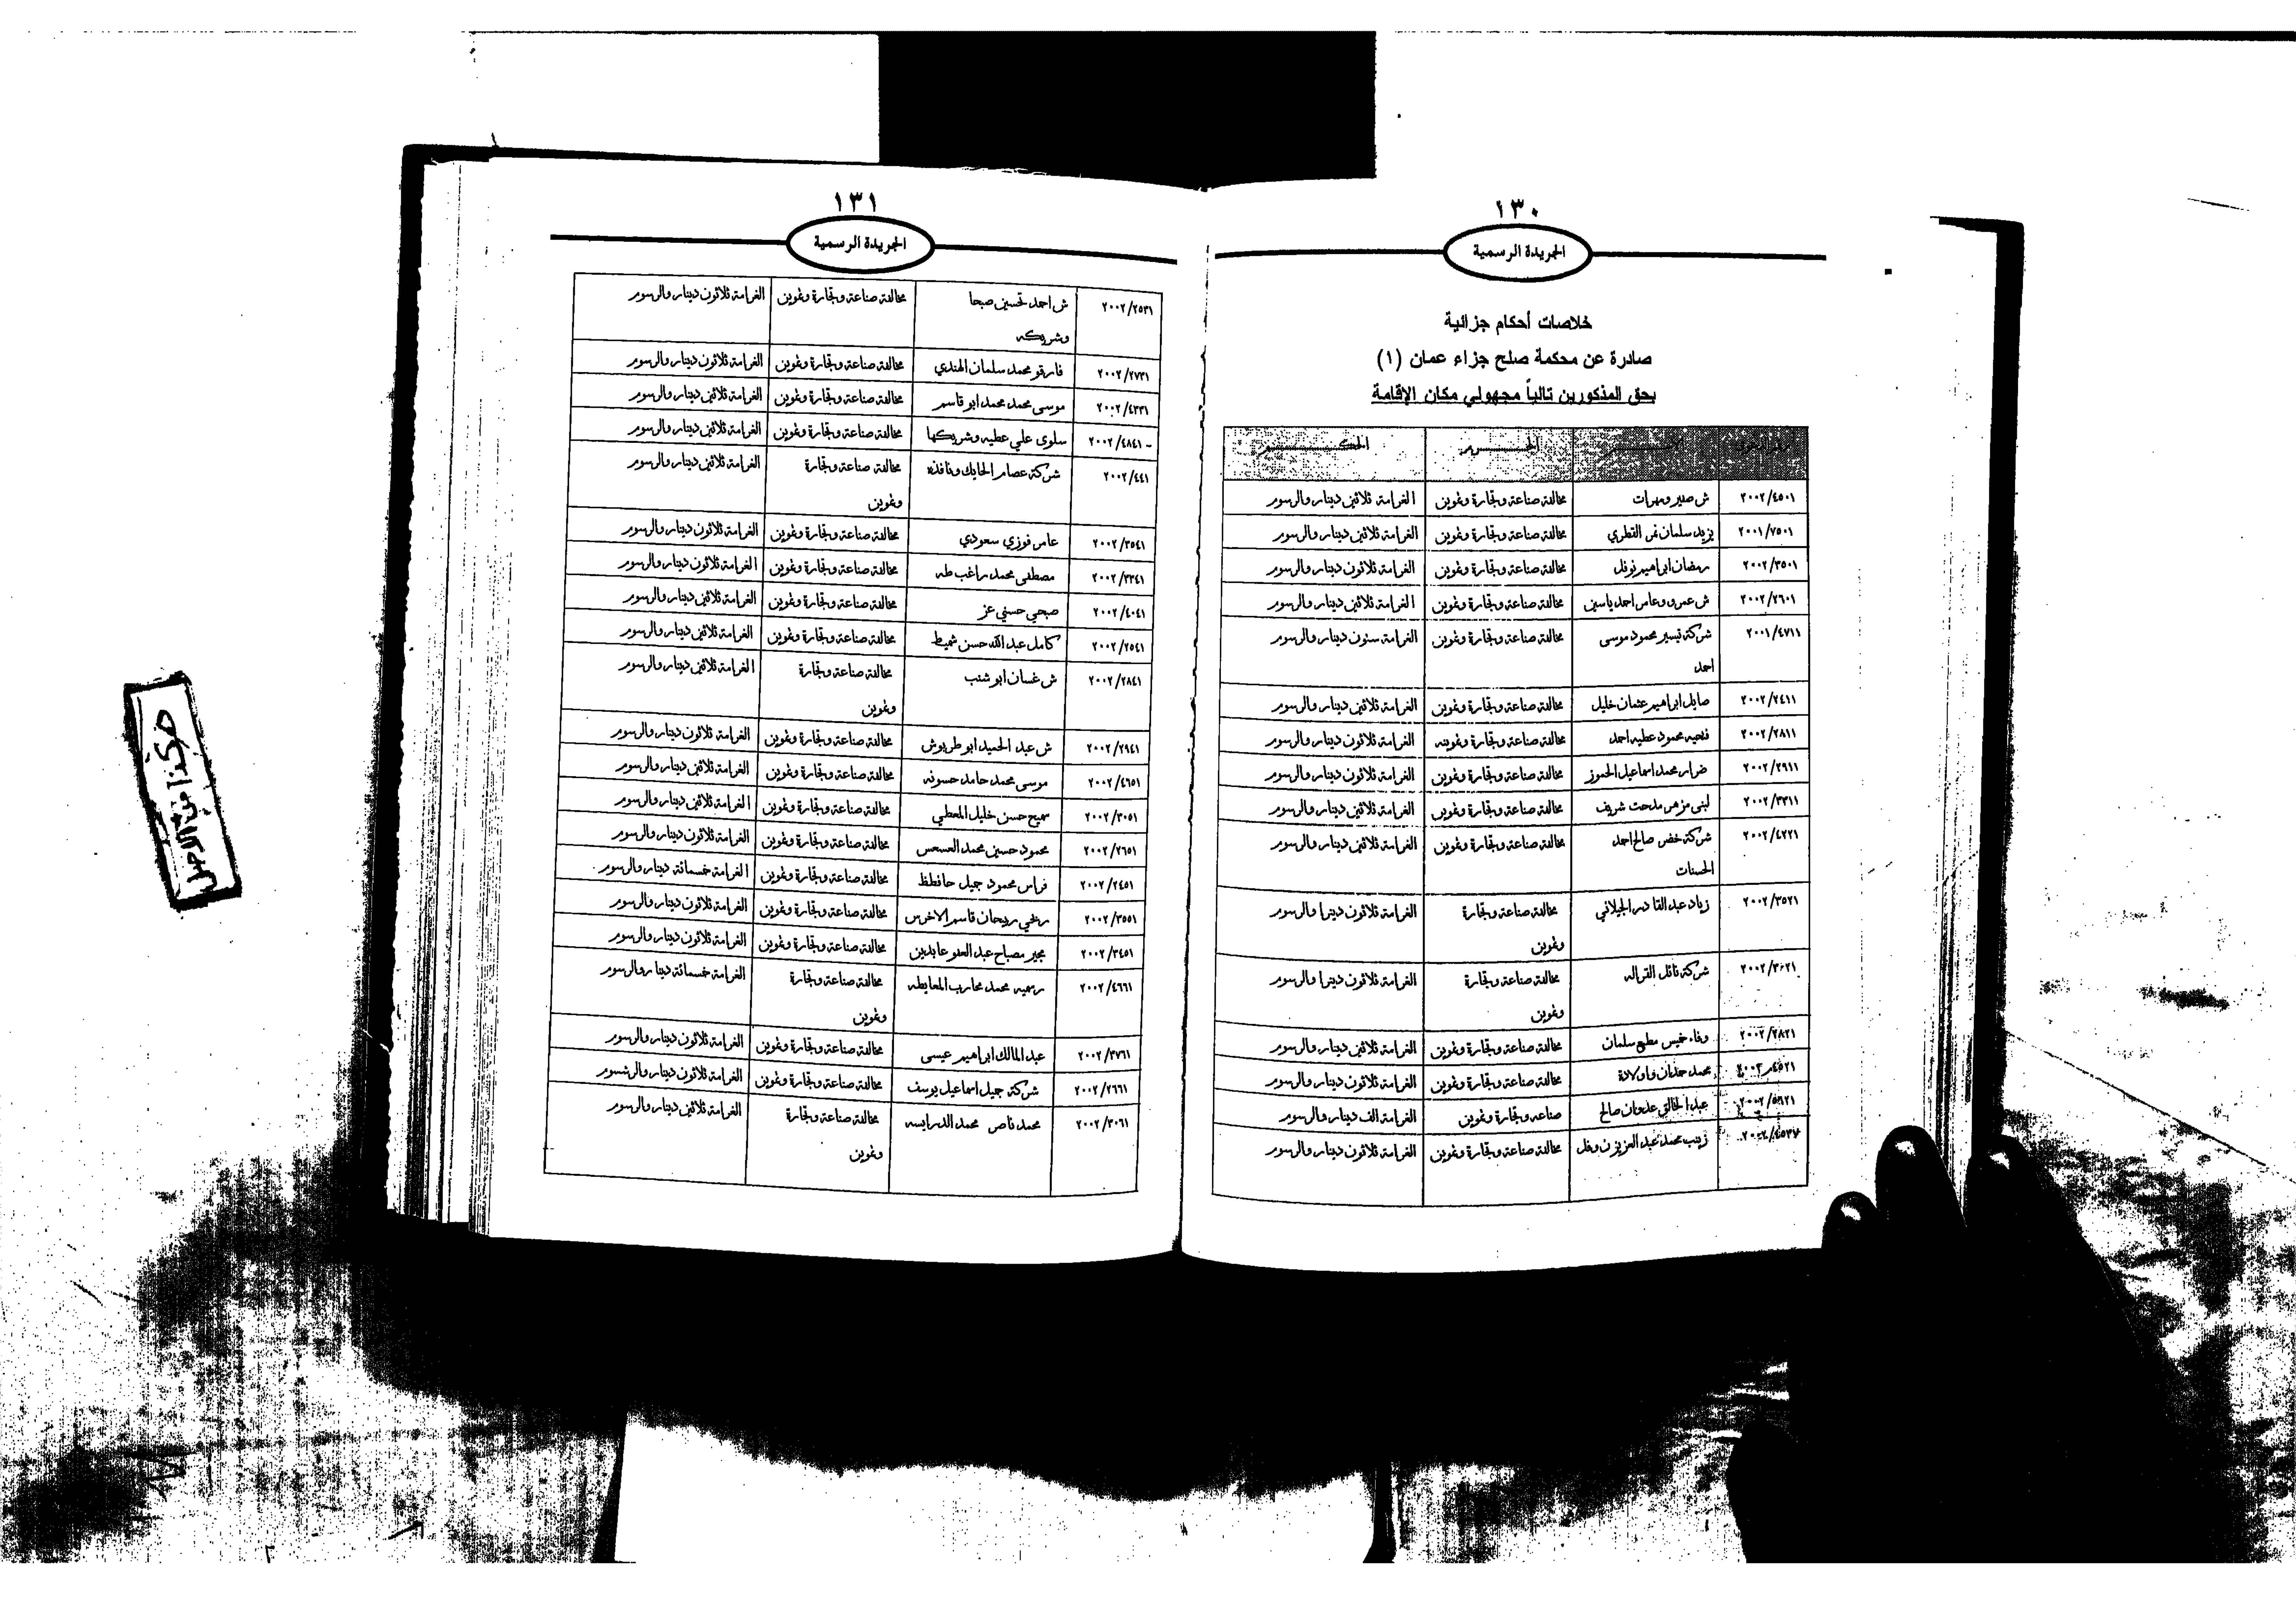 ١٣٠
الجريدة الرسمية
خلاصات أحكام جزائية
صادرة عن محكمة صلح جزاء عمان (١)
بحق المذكورين تالياً مجهولي مكان الإقامة
الجـــــرم الحكـــــــــم
٢٠٠٢/٤٥٠١ ش صبر ومهرات مخالفة صناعة وتجارة وتموين الغرامة ثلاثين دينار والرسوم
٢٠٠١/٧٥٠١ يزيد سلمان نمر القطري مخالفة صناعة وتجارة وتموين الغرامة ثلاثين دينار والرسوم
٢٠٠٢/٣٥٠١ رمضان ابراهيم نوفل مخالفة صناعة وتجارة وتموين الغرامة ثلاثون دينار والرسوم
٢٠٠٢/٢٦٠١ ش عمرو وعامر احمد ياسين مخالفة صناعة وتجارة وتموين الغرامة ثلاثين دينار والرسوم
٢٠٠١/٤٧١١ شركة تيسير محمود موسى مخالفة صناعة وتجارة وتموين الغرامة ستون دينار والرسوم
احمد
٢٠٠٢/٢٤١١ صايل ابراهيم عثمان خليل مخالفة صناعة وتجارة وتموين الغرامة ثلاثين دينار والرسوم
٢٠٠٢/٢٨١١ فتحيه محمود عطيه احمد مخالفة صناعة وتجارة وتموينه الغرامة ثلاثون دينار والرسوم
٢٠٠٢/٢٩١١ ضرار محمد اسماعيل الحموز مخالفة صناعة وتجارة وتموين الغرامة ثلاثون دينار والرسوم
٢٠٠٢/٣٣١١ لبنى مزهر مدحت شريف مخالفة صناعة وتجارة وتموين الغرامة ثلاثين دينار والرسوم
٢٠٠٢/٤٢٢١ شركة خضر صالح احمد مخالفة صناعة وتجارة وتموين الغرامة ثلاثين دينار والرسوم
الحسنات
٢٠٠٢/٣٥٢١ زياد عبد القادر الجيلاني مخالفة صناعة وتجارة الغرامة ثلاثون دينرا والرسوم
وتموين
٢٠٠٢/٣٠٢١ شركة نائل القراله مخالفة صناعة وتجارة الغرامة ثلاثون دينرا والرسوم
وتموين
٢٠٠٢/٢٨٢١ وفاء خميس مطيع سلمان مخالفة صناعة وتجارة وتموين الغرامة ثلاثين دينار والرسوم
محمد حمدان واولادة مخالفة صناعة وتجارة وتموين الغرامة ثلاثون دينار والرسوم
عبد الخالق عدوان صالح صناعه وتجارة وتموين الغرامة الف دينار والرسوم
زينب محمد عبد العزيز نوفل مخالفة صناعة وتجارة وتموين الغرامة ثلاثون دينار والرسوم
١٣١
الجريدة الرسمية
٢٠٠٢/٢٥٣١ ش احمد تحسين صبحا مخالفة صناعة وتجارة وتموين الغرامة ثلاثون دينار والرسوم
وشريكه
٢٠٠٢/٢٧٣١ فارقو محمد سلمان الهندي مخالفة صناعة وتجارة وتموين الغرامة ثلاثون دينار والرسوم
٢٠٠٢/٤٣٣١ موسى محمد محمد ابو قاسم مخالفة صناعة وتجارة وتموين الغرامة ثلاثين دينار والرسوم
٢٠٠٢/٤٨٤١ - سلوى علي عطيه وشريكها مخالفة صناعة وتجارة وتموين الغرامة ثلاثين دينار والرسوم
٢٠٠٢/٤٤١ شركة عصام الحايك ونافذه مخالفة صناعة وتجارة الغرامة ثلاثين دينار والرسوم
وتموين
٢٠٠٢/٣٥٤١ عامر فوزي سعودي مخالفة صناعة وتجارة وتموين الغرامة ثلاثون دينار والرسوم
٢٠٠٢/٣٣٤١ مصطفى محمد راغب طه مخالفة صناعة وتجارة وتموين الغرامة ثلاثون دينار والرسوم
٢٠٠٢/٤٠٤١ صبحي حسني عز مخالفة صناعة وتجارة وتموين الغرامة ثلاثين دينار والرسوم
٢٠٠٢/٢٥٤١ كامل عبد الله حسن شميط مخالفة صناعة وتجارة وتموين الغرامة ثلاثين دينار والرسوم
٢٠٠٢/٢٨٤١ ش غسان ابو شنب مخالفة صناعة وتجارة الغرامة ثلاثين دينار والرسوم
وتموين
٢٠٠٢/٢٩٤١ ش عبد الحميد ابو طربوش مخالفة صناعة وتجارة وتموين الغرامة ثلاثون دينار والرسوم
٢٠٠٢/٤٦٥١ موسى محمد حامد حسونه مخالفة صناعة وتجارة وتموين الغرامة ثلاثين دينار والرسوم
٢٠٠٢/٣٠٥١ سميح حسن خليل المعطي مخالفة صناعة وتجارة وتموين الغرامة ثلاثين دينار والرسوم
٢٠٠٢/٢٦٥١ محمود حسين محمد العسعس مخالفة صناعة وتجارة وتموين الغرامة ثلاثون دينار والرسوم
٢٠٠٢/٢٤٥١ فراس محمود جميل حافظظ مخالفة صناعة وتجارة وتموين الغرامة خمسمائة دينار والرسوم
٢٠٠٢/٣٥٥١ ربحي ربيحان قاسم الاخرس مخالفة صناعة وتجارة وتموين الغرامة ثلاثون دينار والرسوم
٢٠٠٢/٣٤٥١ مجير مصباح عبد العفو عابدين مخالفة صناعة وتجارة وتموين الغرامة ثلاثون دينار والرسوم
٢٠٠٢/٤٦٦١ رسميه محمد محارب المعايطه مخالفة صناعة وتجارة الغرامة خمسمائة دينار والرسوم
وتموين
٢٠٠٢/٣٧٦١ عبد المالك ابراهيم عيسى مخالفة صناعة وتجارة وتموين الغرامة ثلاثون دينار والرسوم
٢٠٠٢/٢٦٦١ شركة جميل اسماعيل يوسف مخالفة صناعة وتجارة وتموين الغرامة ثلاثون دينار والرشسوم
٢٠٠٢/٣٠٦١ محمد ناصر محمد الدرابسه مخالفة صناعة وتجارة الغرامة ثلاثين دينار والرسوم
وتموين
هكذا من الأصل